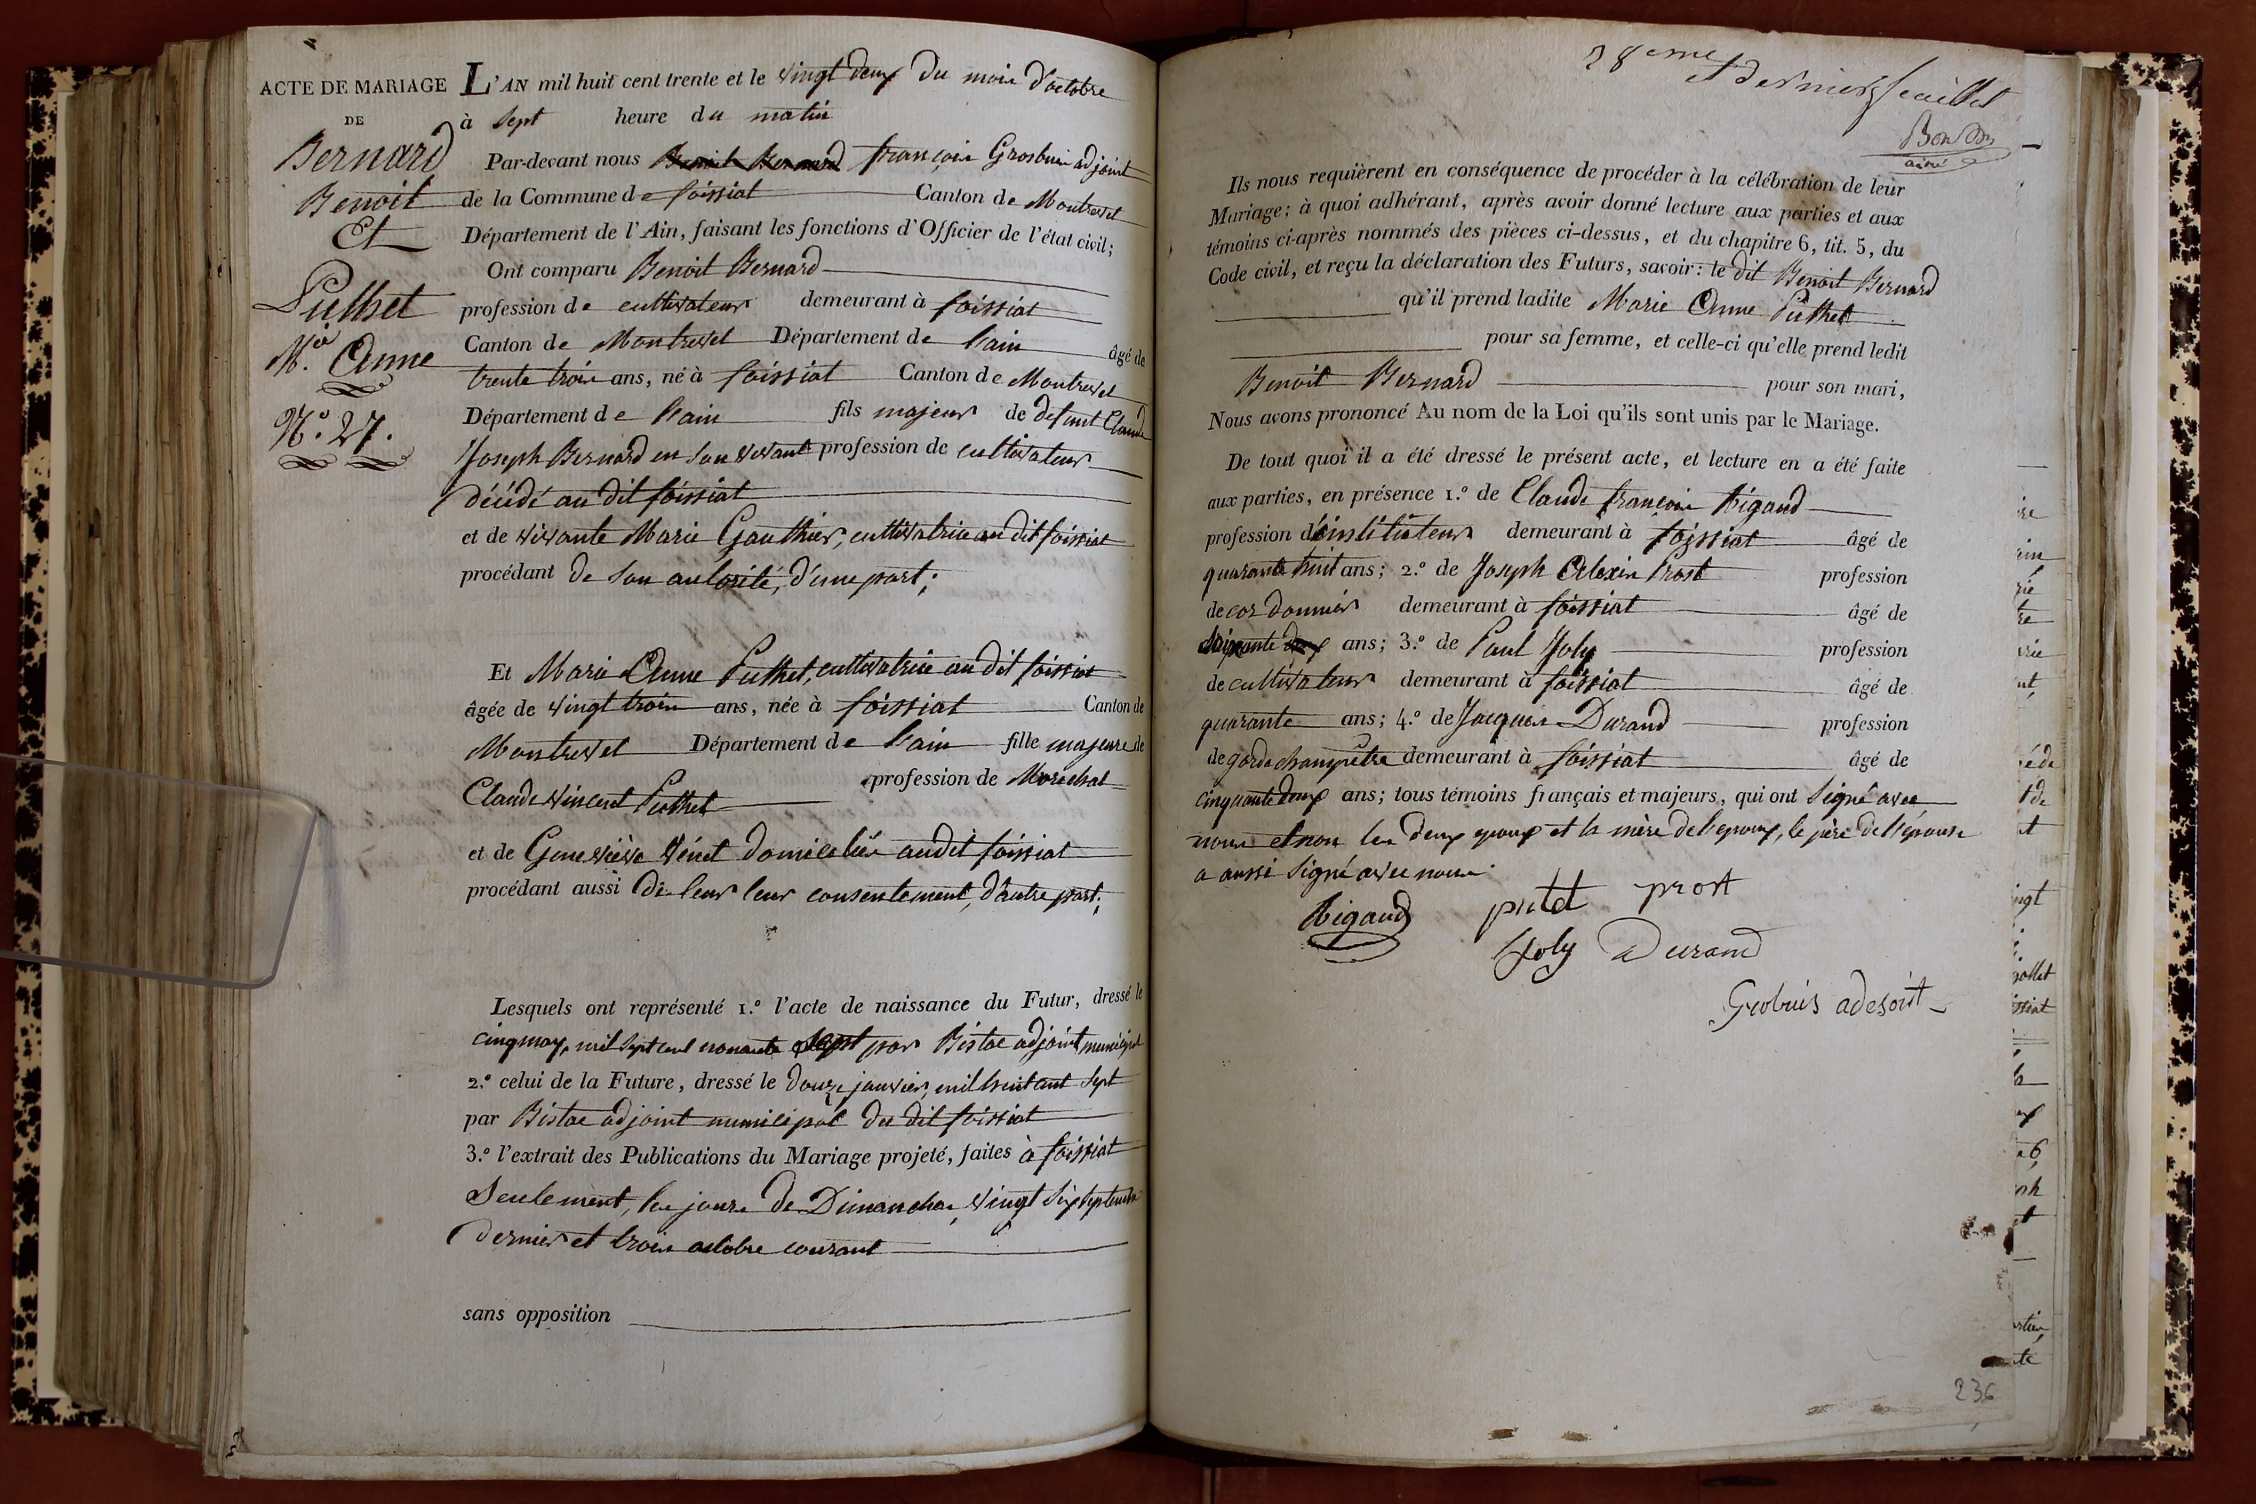 ACTE DE MARIAGE
DE
Bernard
Benoit
Et
Puthet
M.ie Anne
N.o 27.
L'AN mil huit cent trente et le vingt deux du mois d'octobre
à sept heure du matin
Par-devant nous Benoit Bernard françois Grosbuis adjoint
de la Commune de foissiat Canton de Montrevel
Département de l'Ain, faisant les fonctions d'Officier de l'état civil;
Ont comparu Benoit Bernard
profession de cultivateur demeurant à foissiat
Canton de Montrevel Département de l'ain âgé de
trente trois ans, né à foissiat Canton de Montrevel
Département de l'ain fils majeur de defunt Claude
Joseph Bernard en son vivant profession de cultivateur
décédé au dit foissiat
et de vivante Marie Gauthier, cultivatrice au dit foissiat
procédant de son autorité, d'une part;
Et Marie Anne Puthet, cultivatrice au dit foissiat
âgée de vingt trois ans, née à foissiat Canton de
Montrevel Département de l'ain fille majeure de
Claude vincent Puthet profession de Marechal
et de Geneviève Vénet domiciliés audit foissiat
procédant aussi de leur leur consentement, d'autre part;
Lesquels ont représenté 1.o l'acte de naissance du Futur, dressé le
cinq may, mil sept cent nonante sept par Bistac adjoint municipal
2.o celui de la Future, dressé le douze janvier, mil huit cent sept
par Bistac adjoint municipal du dit foissiat
3.o l'extrait des Publications du Mariage projeté, faites à foissiat
Seulement, les jours de Dimanches, vingt six septembre
dernier et trois octobre courant
sans opposition
28eme et dernier feuillet
ainé
Ils nous requièrent en conséquence de procéder à la célébration de leur
Mariage; à quoi adhérant, après avoir donné lecture aux parties et aux
témoins ci-après nommés des pièces ci-dessus, et du chapitre 6, tit. 5, du
Code civil, et reçu la déclaration des Futurs, savoir: le dit Benoit Bernard
qu'il prend ladite Marie Anne Puthet
pour sa femme, et celle-ci qu'elle prend ledit
Benoit Bernard pour son mari,
Nous avons prononcé Au nom de la Loi qu'ils sont unis par le Mariage.
De tout quoi il a été dressé le présent acte, et lecture en a été faite
aux parties, en présence 1.o de Claude françois Rigaud
profession d'instituteur demeurant à foissiat âgé de
quarante huit ans; 2.o de Joseph Alexis Prost profession
de cordonnier demeurant à foissiat âgé de
soixante deux ans; 3.o de Paul Joly profession
de cultivateur demeurant à foissiat âgé de
quarante ans; 4.o de Jacques Durand profession
de garde champêtre demeurant à foissiat âgé de
cinquante deux ans; tous témoins français et majeurs, qui ont signé avec
nous et non les deux epoux et la mère de l'epoux, le père de l'épouse
a aussi signé avec nous.
Rigaud putet prost
Joly Durand
Grobuis adesoit
236